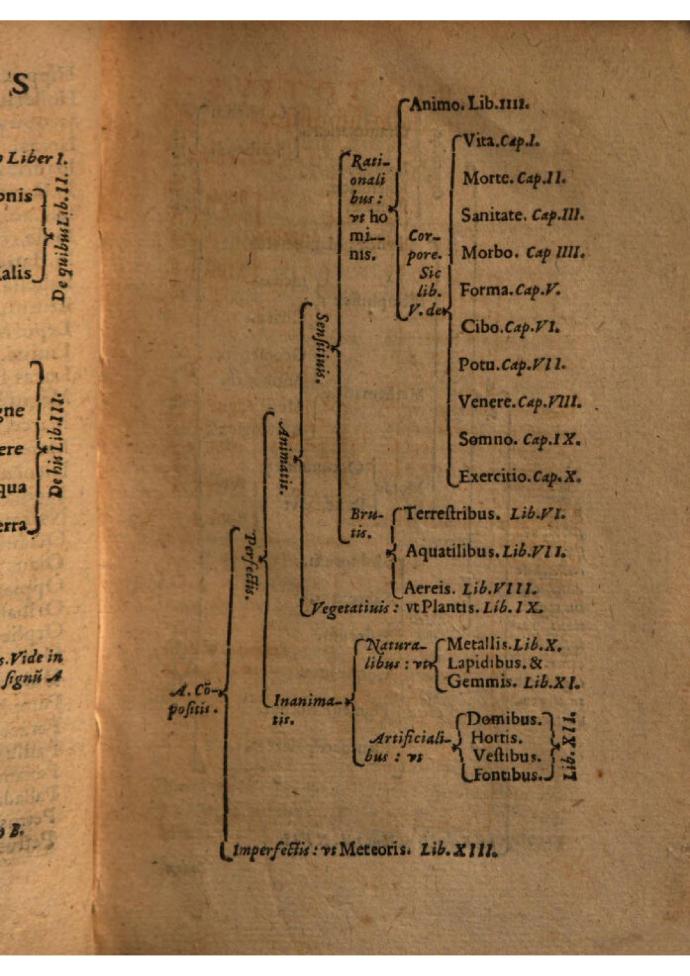 S
Liber I.
onis
alis
De quibus Lib. II.
gne
ere
qua
erra
De his Lib. III.
s. Vide in
signũ A
B.
A. Cõ-
positis.
Perfectis.
Animatis.
Sensitiuis.
Rati-
onali
bus :
vt ho
mi--
nis.
Animo. Lib. IIII.
Cor-
pore.
Sic
lib.
V. de
Vita. Cap. I.
Morte. Cap. II.
Sanitate. Cap. III.
Morbo. Cap IIII.
Forma. Cap. V.
Cibo. Cap. VI.
Potu. Cap. VII.
Venere. Cap. VIII.
Somno. Cap. IX.
Exercitio. Cap. X.
Bru-
tis.
Terrestribus. Lib. VI.
Aquatilibus. Lib. VII.
Aereis. Lib. VIII.
Vegetatiuis : vt Plantis. Lib. IX.
Inanima-
tis.
Natura-
libus : vt
Metallis. Lib. X.
Lapidibus. &
Gemmis. Lib. XI.
Artificiali-
bus : vt
Domibus.
Hortis.
Vestibus.
Fontibus.
Lib. XII.
Imperfectis : vt Meteoris. Lib. XIII.